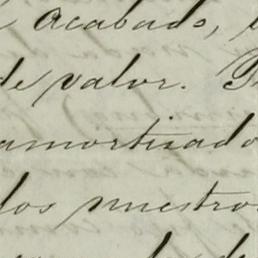 Acabado,
de valor.
amortisado
los nuestros